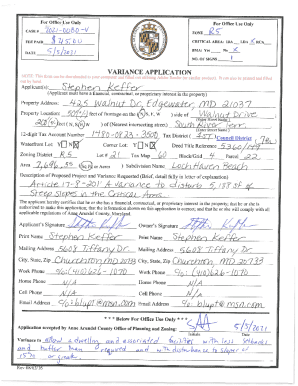 For Office Use Only
CASE # 2021-0080-V
FEE PAID $175.00
DATE 5/5/2021
For Office Use Only
ZONE R5
CRITICAL AREA: IDA LDA RCA
BMA: Yes No
NO. OF SIGNS
VARIANCE APPLICATION
Applicant: Stephen Keffer
(Applicant must have a financial, contractual, or proprietary interest in the property)
Property Address: 425 Walnut Dr. Edgewater, MD 21037
Property Location: feet of frontage on the side of Walnut Drive
feet of (Nearest intersecting street) South River Ter.
12-digit Tax Account Number 1480-0823-3500 Tax District 1ST Council District 7th
Waterfront Lot: Y N Corner Lot: Y N Deed Title Reference
Zoning District R5 Lot # 21 Tax Map 60 Block/Grid 4 Parcel 22
Area Subdivision Name Loch Haven Beach
Description of Proposed Project and Variance Requested (Brief, detail fully in letter of explanation)
Article 17-8-201 A variance to disturb 5,158 sf
Steep Slopes in the Critical Area.
The applicant hereby certifies that he or she has a financial, contractual, or proprietary interest in the property; that he or she is
authorized to make this application; that the information shown on this application is correct; and that he or she will comply with
all applicable regulations of Anne Arundel County, Maryland.
Applicant's Signature Owner's Signature
Print Name Stephen Keffer Print Name Stephen Keffer
Mailing Address 5608 Tiffany Dr. Mailing Address 5608 Tiffany Dr
City, State, Zip Churchton MD 20733 City, State, Zip Churchton, MD 20733
Work Phone (410) 626-1070 Work Phone (410) 626-1070
Home Phone Home Phone
Cell Phone Cell Phone
Email Address Email Address
*** Below For Office Use Only ***
Application accepted by Anne Arundel County Office of Planning and Zoning: SAA 5/5/2021
Initials Date
Variance to allow a dwelling and associated facilities with less setbacks
and than required and with disturbance to slopes of
15% or greater